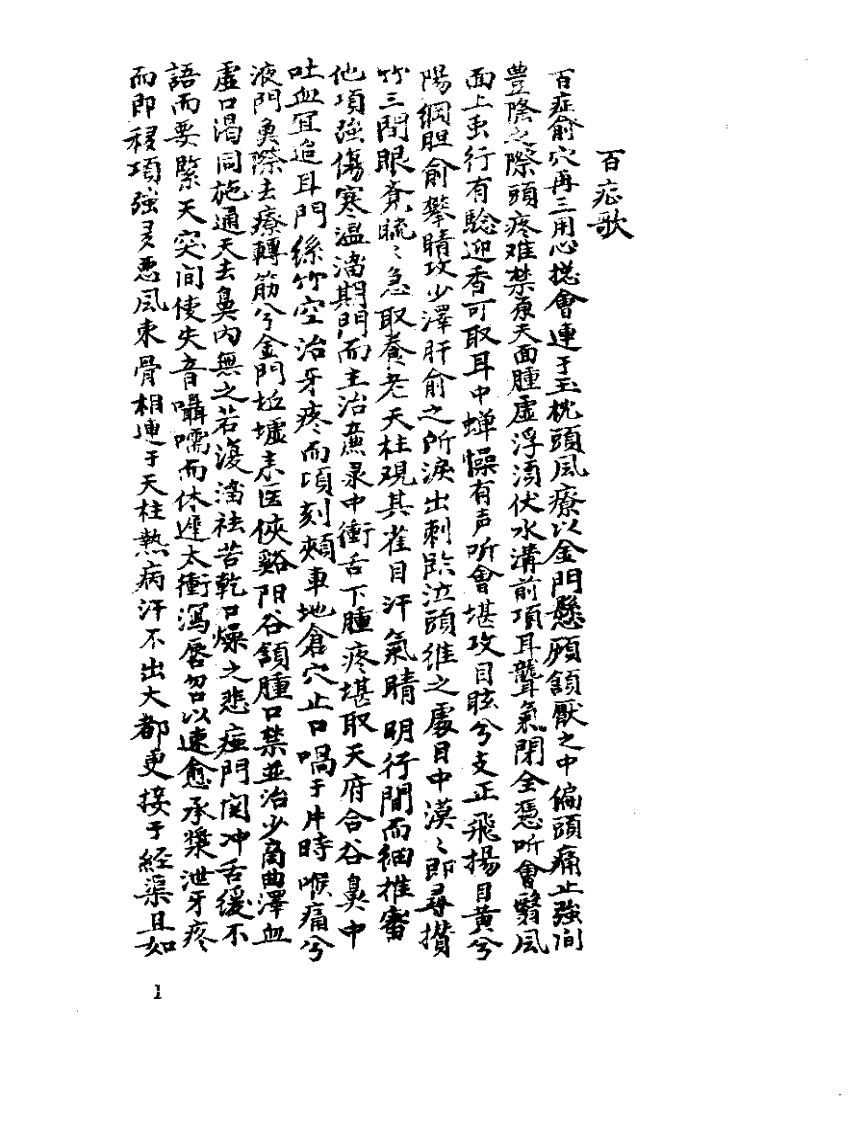 百症歌
百症俞穴再三用心揔會連于玉枕頭风療以金門懸顱頷厭之中偏頭痛止強间
豊隆之際頭疼难禁原天面腫虛浮湏伏水溝前項耳聾氣閉全憑听會翳风
面上虫行有驗迎香可取耳中蝉懆有声听會堪攻目眩兮支正飛揚目黄兮
陽綱胆俞攀睛攻少澤肝俞之所淚出刺臨泣頭维之處目中漠〻即尋攅
竹三間眼䀮䀮〻急取養老天柱观其雀目汗氣睛明行間而細推審
他項強傷寒温溜期門而主治亷泉中衝舌下腫疼堪取天府合谷鼻中
吐血宜追耳門絲竹空治牙疼而項刻頰車地倉穴止口喎于片時喉痛兮
液門魚際去療轉筋兮金門坵墟来医俠谿阳谷頷腫口禁並治少商曲澤血
虛口渴同施通天去鼻内無之若復溜祛苦乾口燥之悲痖門関冲舌缓不
語而要緊天突间使失音囁嚅而休遲太衝瀉唇喎以速愈承漿泄牙疼
而即移項強多悪风束骨相連于天柱熱病汗不出大都更接于経渠且如
1